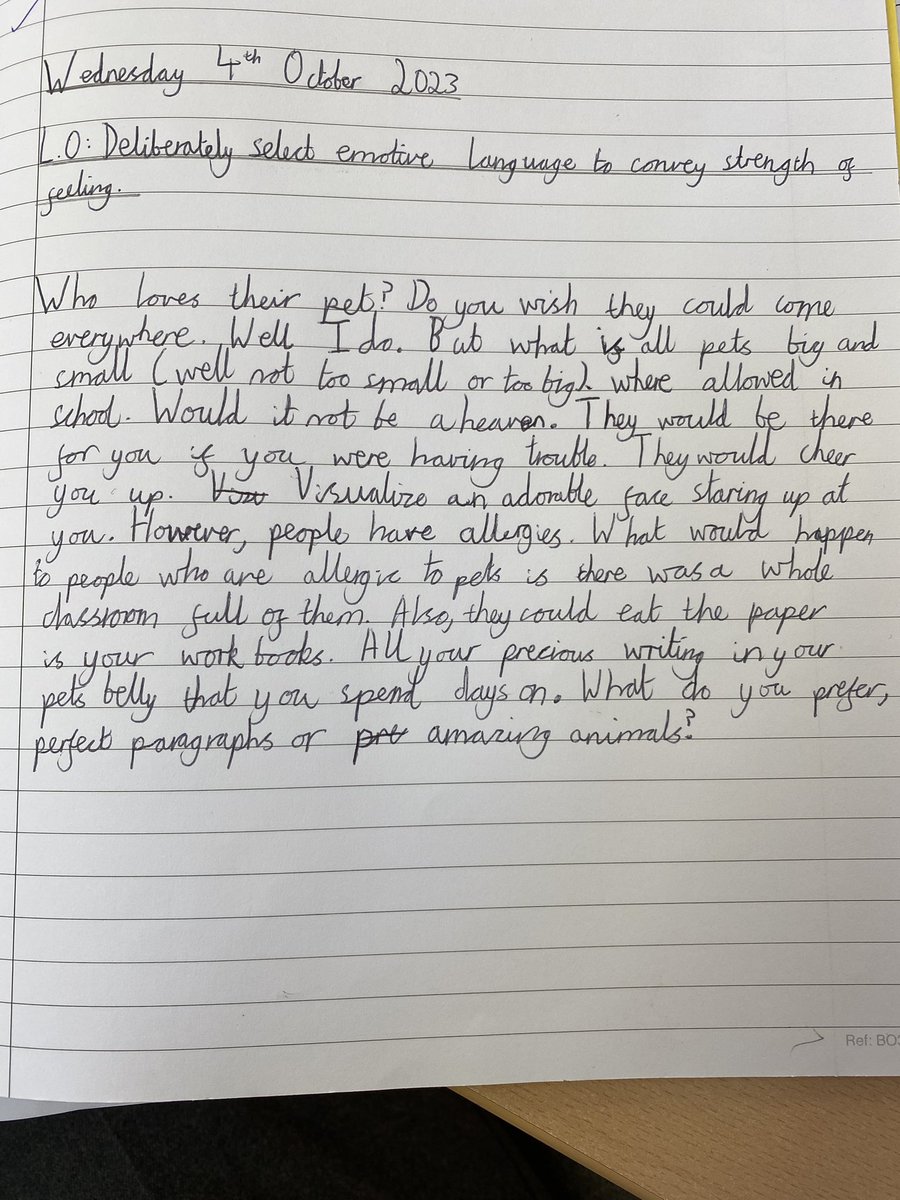 Wednesday 4th October 2023
L.O: Deliberately select emotive language to convey strength of
feeling.
Who loves their pet? Do you wish they could come
everywhere. Well I do. But what is all pets big and
small (well not too small or too big) where allowed in
school. Would it not be a heaven. They would be there
for you if you were having trouble. They would cheer
you up. Visualize an adorable face staring up at
you. However, people have allergies. What would happen
to people who are allergic to pets is there was a whole
classroom full of them. Also, they could eat the paper
is your work books. All your precious writing in your
pets belly that you spend days on. What do you prefer,
perfect paragraphs or amazing animals?
Ref: BO